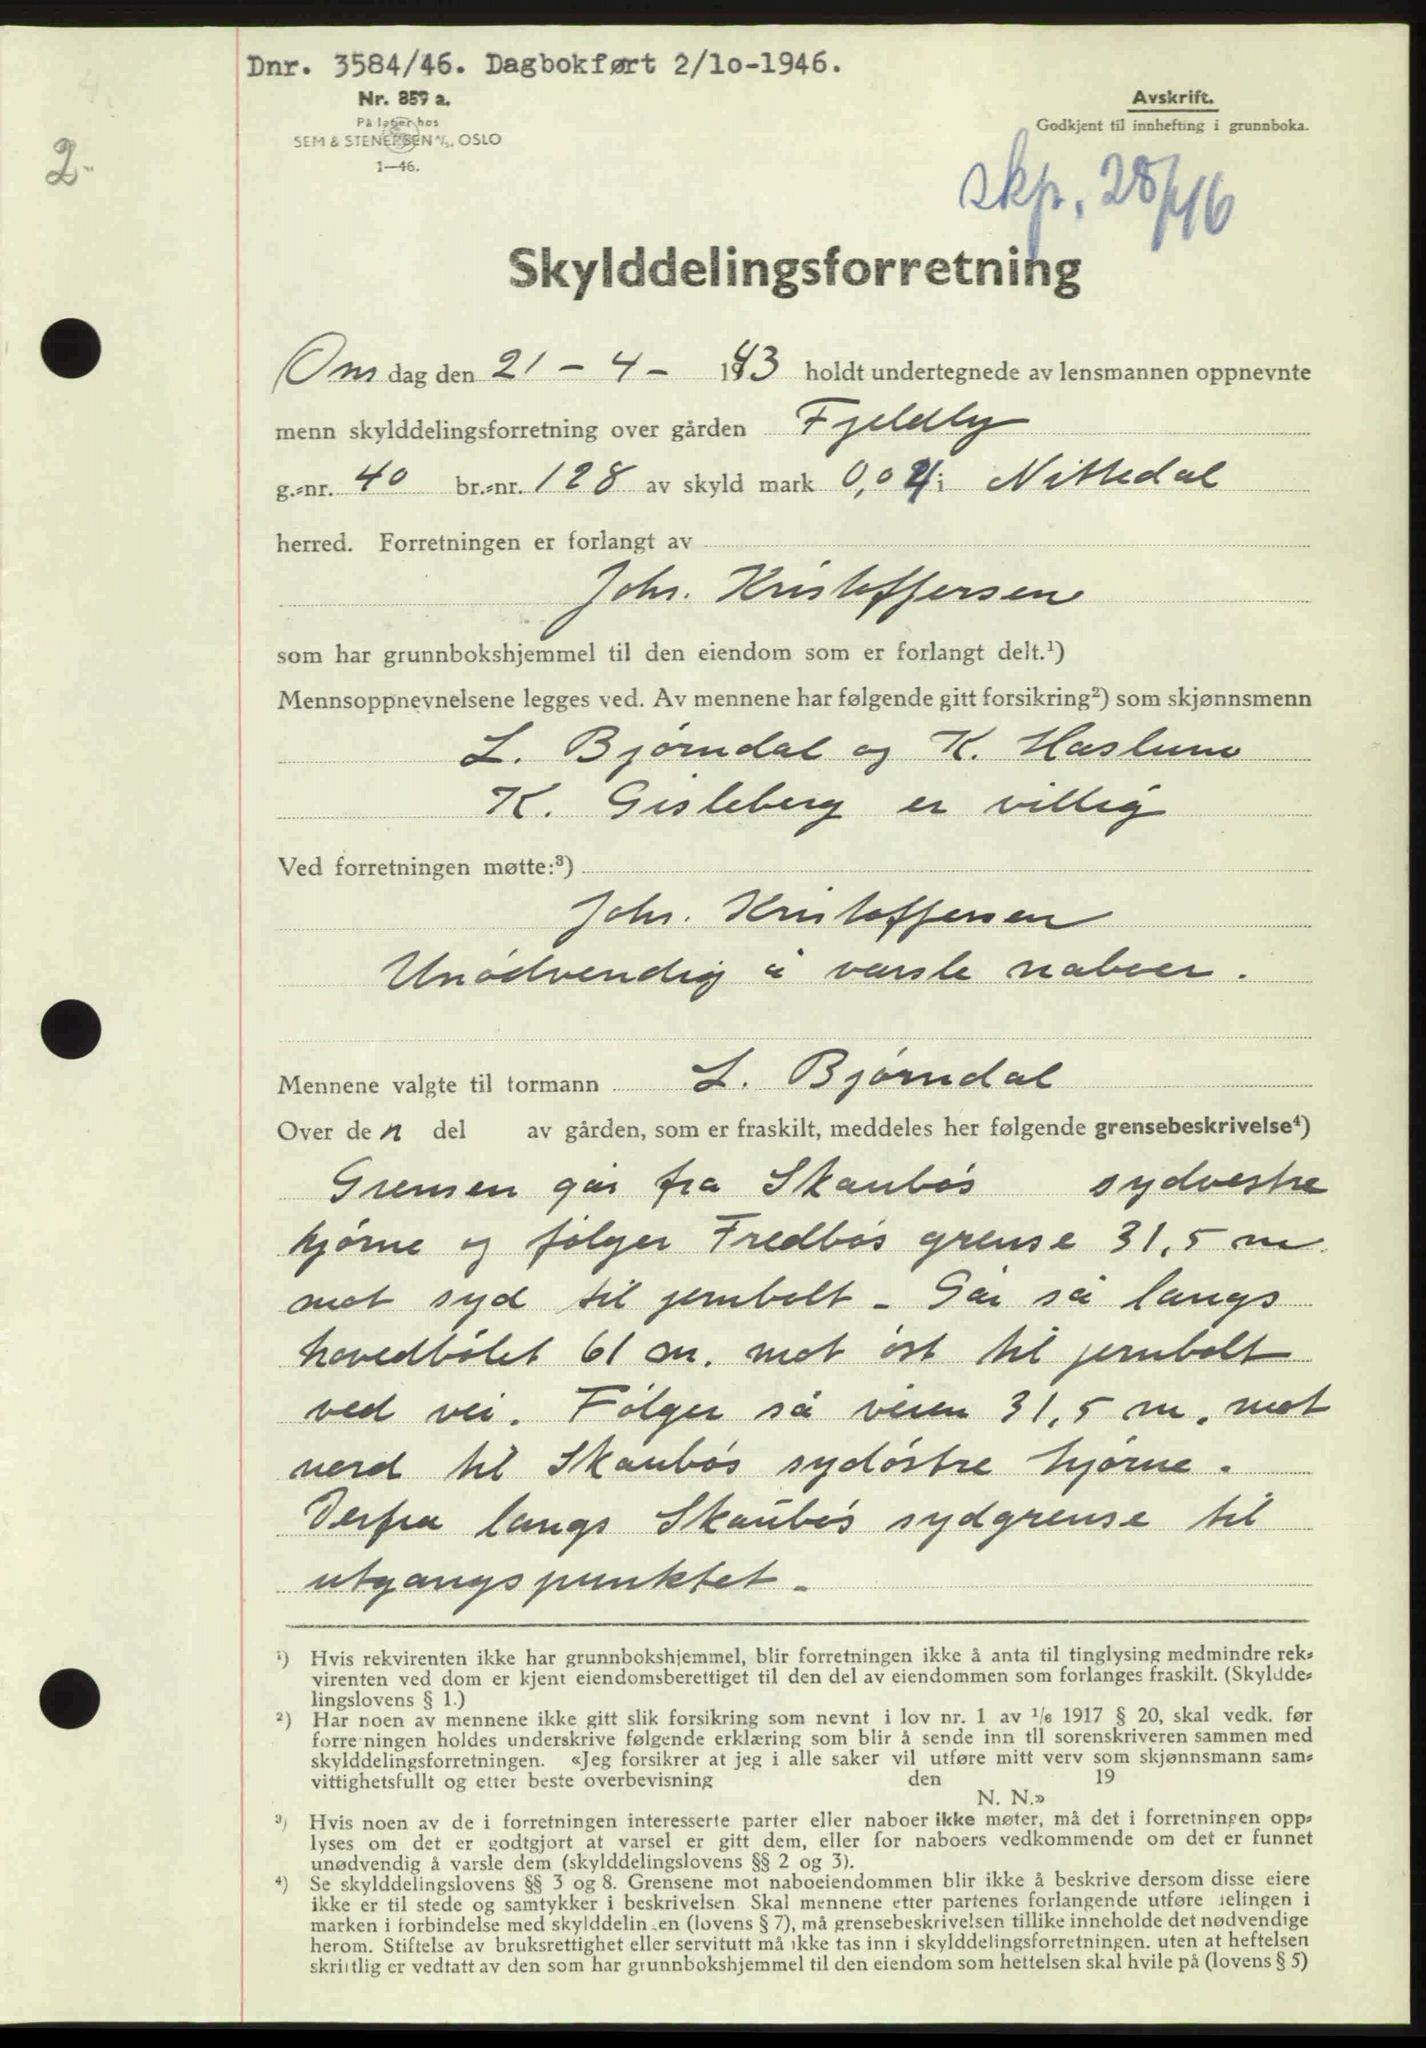 Dnr. 3584/46. Dagbokført 2/10-1946.
2.
Nr. 859 a.
På lager hos
SEM & STENERSEN A/S, OSLO
1—46.
Avskrift.
Godkjent til innhefting i grunnboka.
skp. 28/
Skylddelingsforretning
Onsdag den 21 - 4 - 1943 holdt undertegnede av lensmannen oppnevnte
menn skylddelingsforretning over gården Fjeldly
g.-nr. 40 br.-nr. 128 av skyld mark 0,04 i Nittedal
herred. Forretningen er forlangt av
Johs. Kristoffersen
som har grunnbokshjemmel til den eiendom som er forlangt delt.¹)
Mennsoppnevnelsene legges ved. Av mennene har følgende gitt forsikring²) som skjønnsmenn
L. Bjørndal og K. Haslum
K. Gisleberg er villig
Ved forretningen møtte:³)
Johs. Kristoffersen
Unødvendig å varsle naboer.
Mennene valgte til formann L. Bjørndal
Over den del av gården, som er fraskilt, meddeles her følgende grensebeskrivelse⁴)
Grensen går fra Skaubøs sydvestre
hjørne og følger Fredbøs grense 31,5 m.
mot syd til jernbolt - Går så langs
hovedbølet 61 m. mot øst til jernbolt
ved vei. Følger så veien 31,5 m. mot
nord til Skaubøs sydøstre hjørne.
Derfra langs Skaubøs sydgrense til
utgangspunktet.
¹) Hvis rekvirenten ikke har grunnbokshjemmel, blir forretningen ikke å anta til tinglysing medmindre rek-
virenten ved dom er kjent eiendomsberettiget til den del av eiendommen som forlanges fraskilt. (Skyldde-
lingslovens § 1.)
²) Har noen av mennene ikke gitt slik forsikring som nevnt i lov nr. 1 av 1/6 1917 § 20, skal vedk. før
forretningen holdes underskrive følgende erklæring som blir å sende inn til sorenskriveren sammen med
skylddelingsforretningen. «Jeg forsikrer at jeg i alle saker vil utføre mitt verv som skjønnsmann sam-
vittighetsfullt og etter beste overbevisning den 19
N. N.»
³) Hvis noen av de i forretningen interesserte parter eller naboer ikke møter, må det i forretningen opp-
lyses om det er godtgjort at varsel er gitt dem, eller for naboers vedkommende om det er funnet
unødvendig å varsle dem (skylddelingslovens §§ 2 og 3).
⁴) Se skylddelingslovens §§ 3 og 8. Grensene mot naboeiendommen blir ikke å beskrive dersom disse eiere
ikke er til stede og samtykker i beskrivelsen Skal mennene etter partenes forlangende utføre delingen i
marken i forbindelse med skylddelingen (lovens § 7), må grensebeskrivelsen tillike inneholde det nødvendige
herom. Stiftelse av bruksrettighet eller servitutt må ikke tas inn i skylddelingsforretningen. uten at heftelsen
skriftlig er vedtatt av den som har grunnbokshjemmel til den eiendom som heftelsen skal hvile på (lovens § 5)